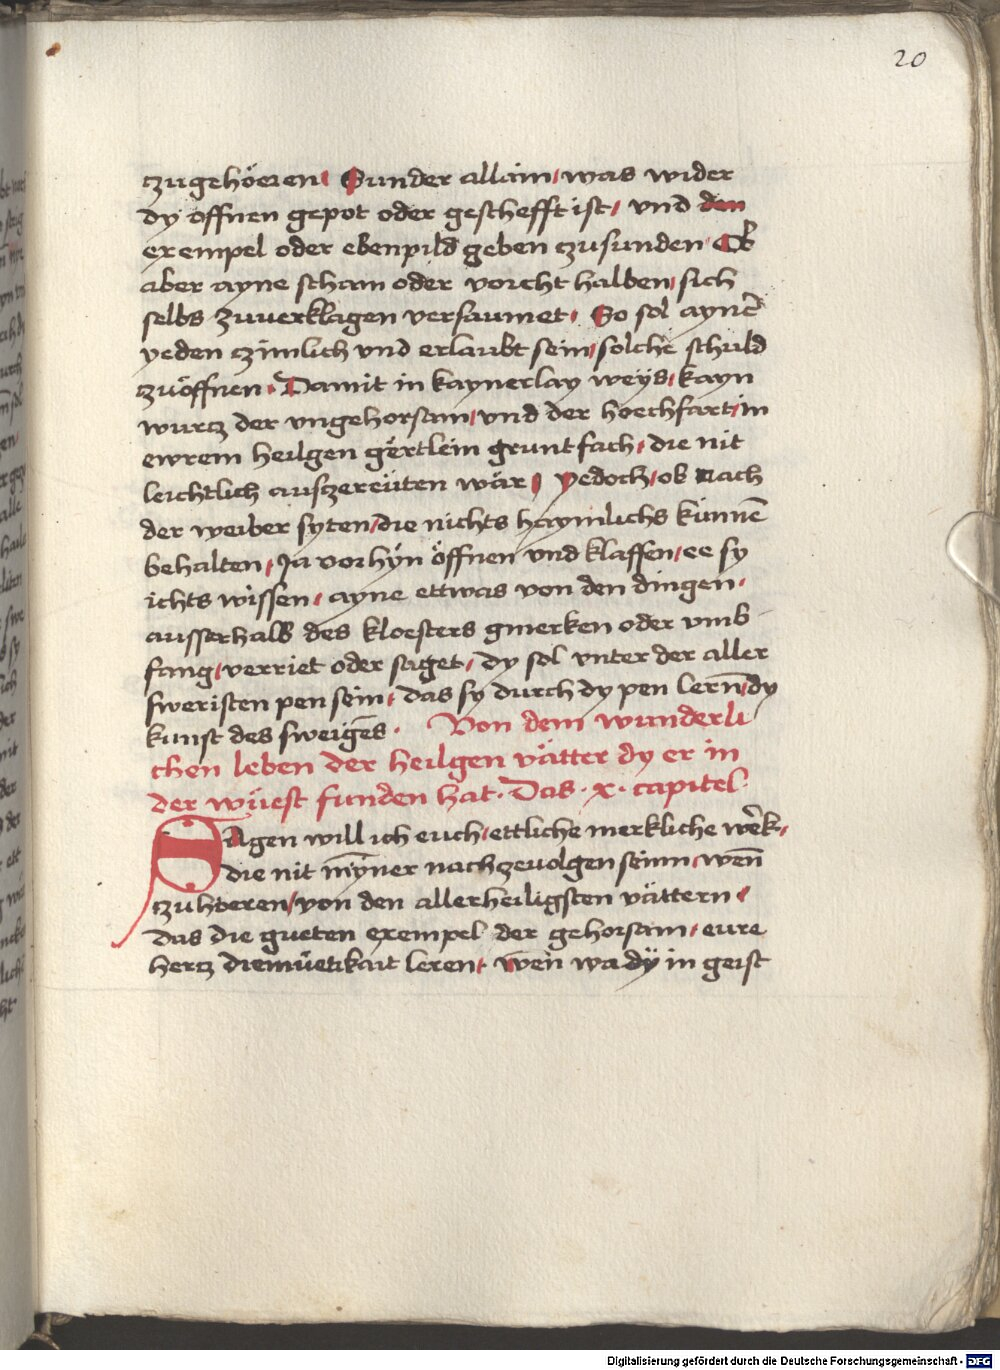 20
zugehöeren Sunder allain was wider
dy öffnen gepot oder geschefft ist und den
exempel oder ebenpild geben zusunden Ob
aber ayne scham oder vorcht halben sich
selbs zuverklagen versaumet So sol aynē
yeden czimlich vnd erlaubt sein solche schuld
zuöffnen Damit in kaynerlay weys kayn
wurcz der vngehorsam vnd der hoechfart in
ewrem heilgen gërtlein grunt fach die nit
leichtlich auszereüten wär Yedoch ob nach
der weiber syten die nichts haymlichs künnē
behalten Ja vorhyn öffnen vnd klaffen ee sy
ichts wissen ayne ettwas von den dingen
ausserhalb des kloesters gmerken oder vmb
fang verriet oder saget dy sol vnter der aller
sweristen pen sein das sy durch dy pen lern̄ dy
kunst des sweigēs Von dem wunderli
chen leben der heilgen vätter dy er in
der wüest funden hat Das x capitel
SAgen will ich euch ettliche merkliche wërk
die nit mȳner nachzevolgen seinn wen̄
zuhoeren von den allerheiligsten vättern
Das die gueten exempel der gehorsam eure
hercz diemüetikait leren wen̄ wa dÿ in geist
Digitalisierung gefördert durch die Deutsche Forschungsgemeinschaft - DFG